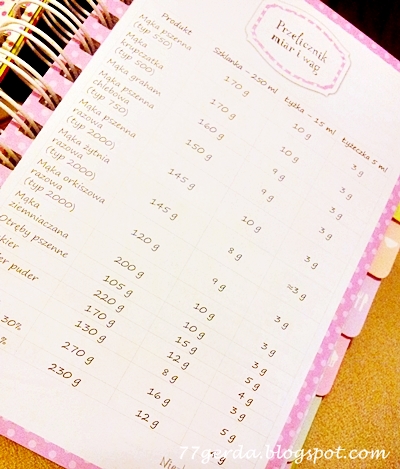 Przelicznik
miar i wag
Produkt Szklanka – 250 ml łyżka – 15 ml łyżeczka 5 ml
Mąka pszenna
(typ 550) 170 g 10 g 3 g
Mąka
krupczatka
(typ 500) 170 g 10 g 3 g
Mąka graham 160 g 9 g 3 g
Mąka pszenna
chlebowa
(typ 750) 150 g 9 g 3 g
Mąka pszenna
razowa
(typ 2000) 145 g 10 g 3 g
Mąka żytnia
razowa
(typ 2000) 145 g 8 g 3 g
Mąka orkiszowa
razowa
(typ 2000) 120 g 9 g ≈3 g
Mąka
ziemniaczana 200 g 10 g 3 g
Otręby pszenne 105 g 10 g 3 g
kier 220 g 15 g 5 g
er puder 170 g 12 g 4 g
130 g 8 g 3 g
30% 270 g 16 g 5 g
% 230 g 12 g g
77gerda.blogspot.com